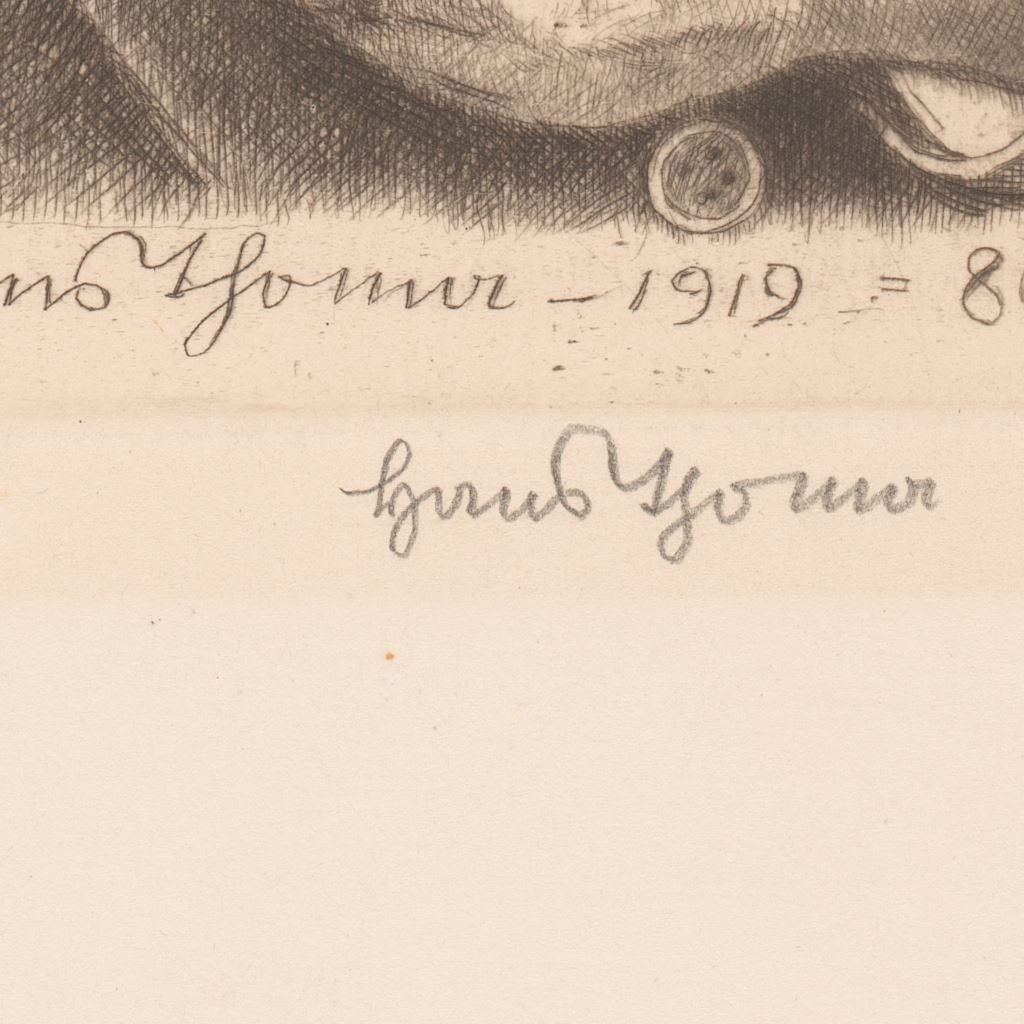 ns Thoma – 1919 = 8
Hans Thoma